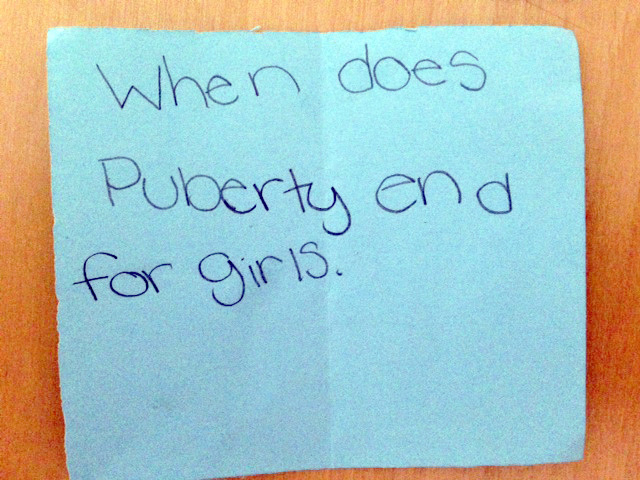 When does
Puberty end
for girls.